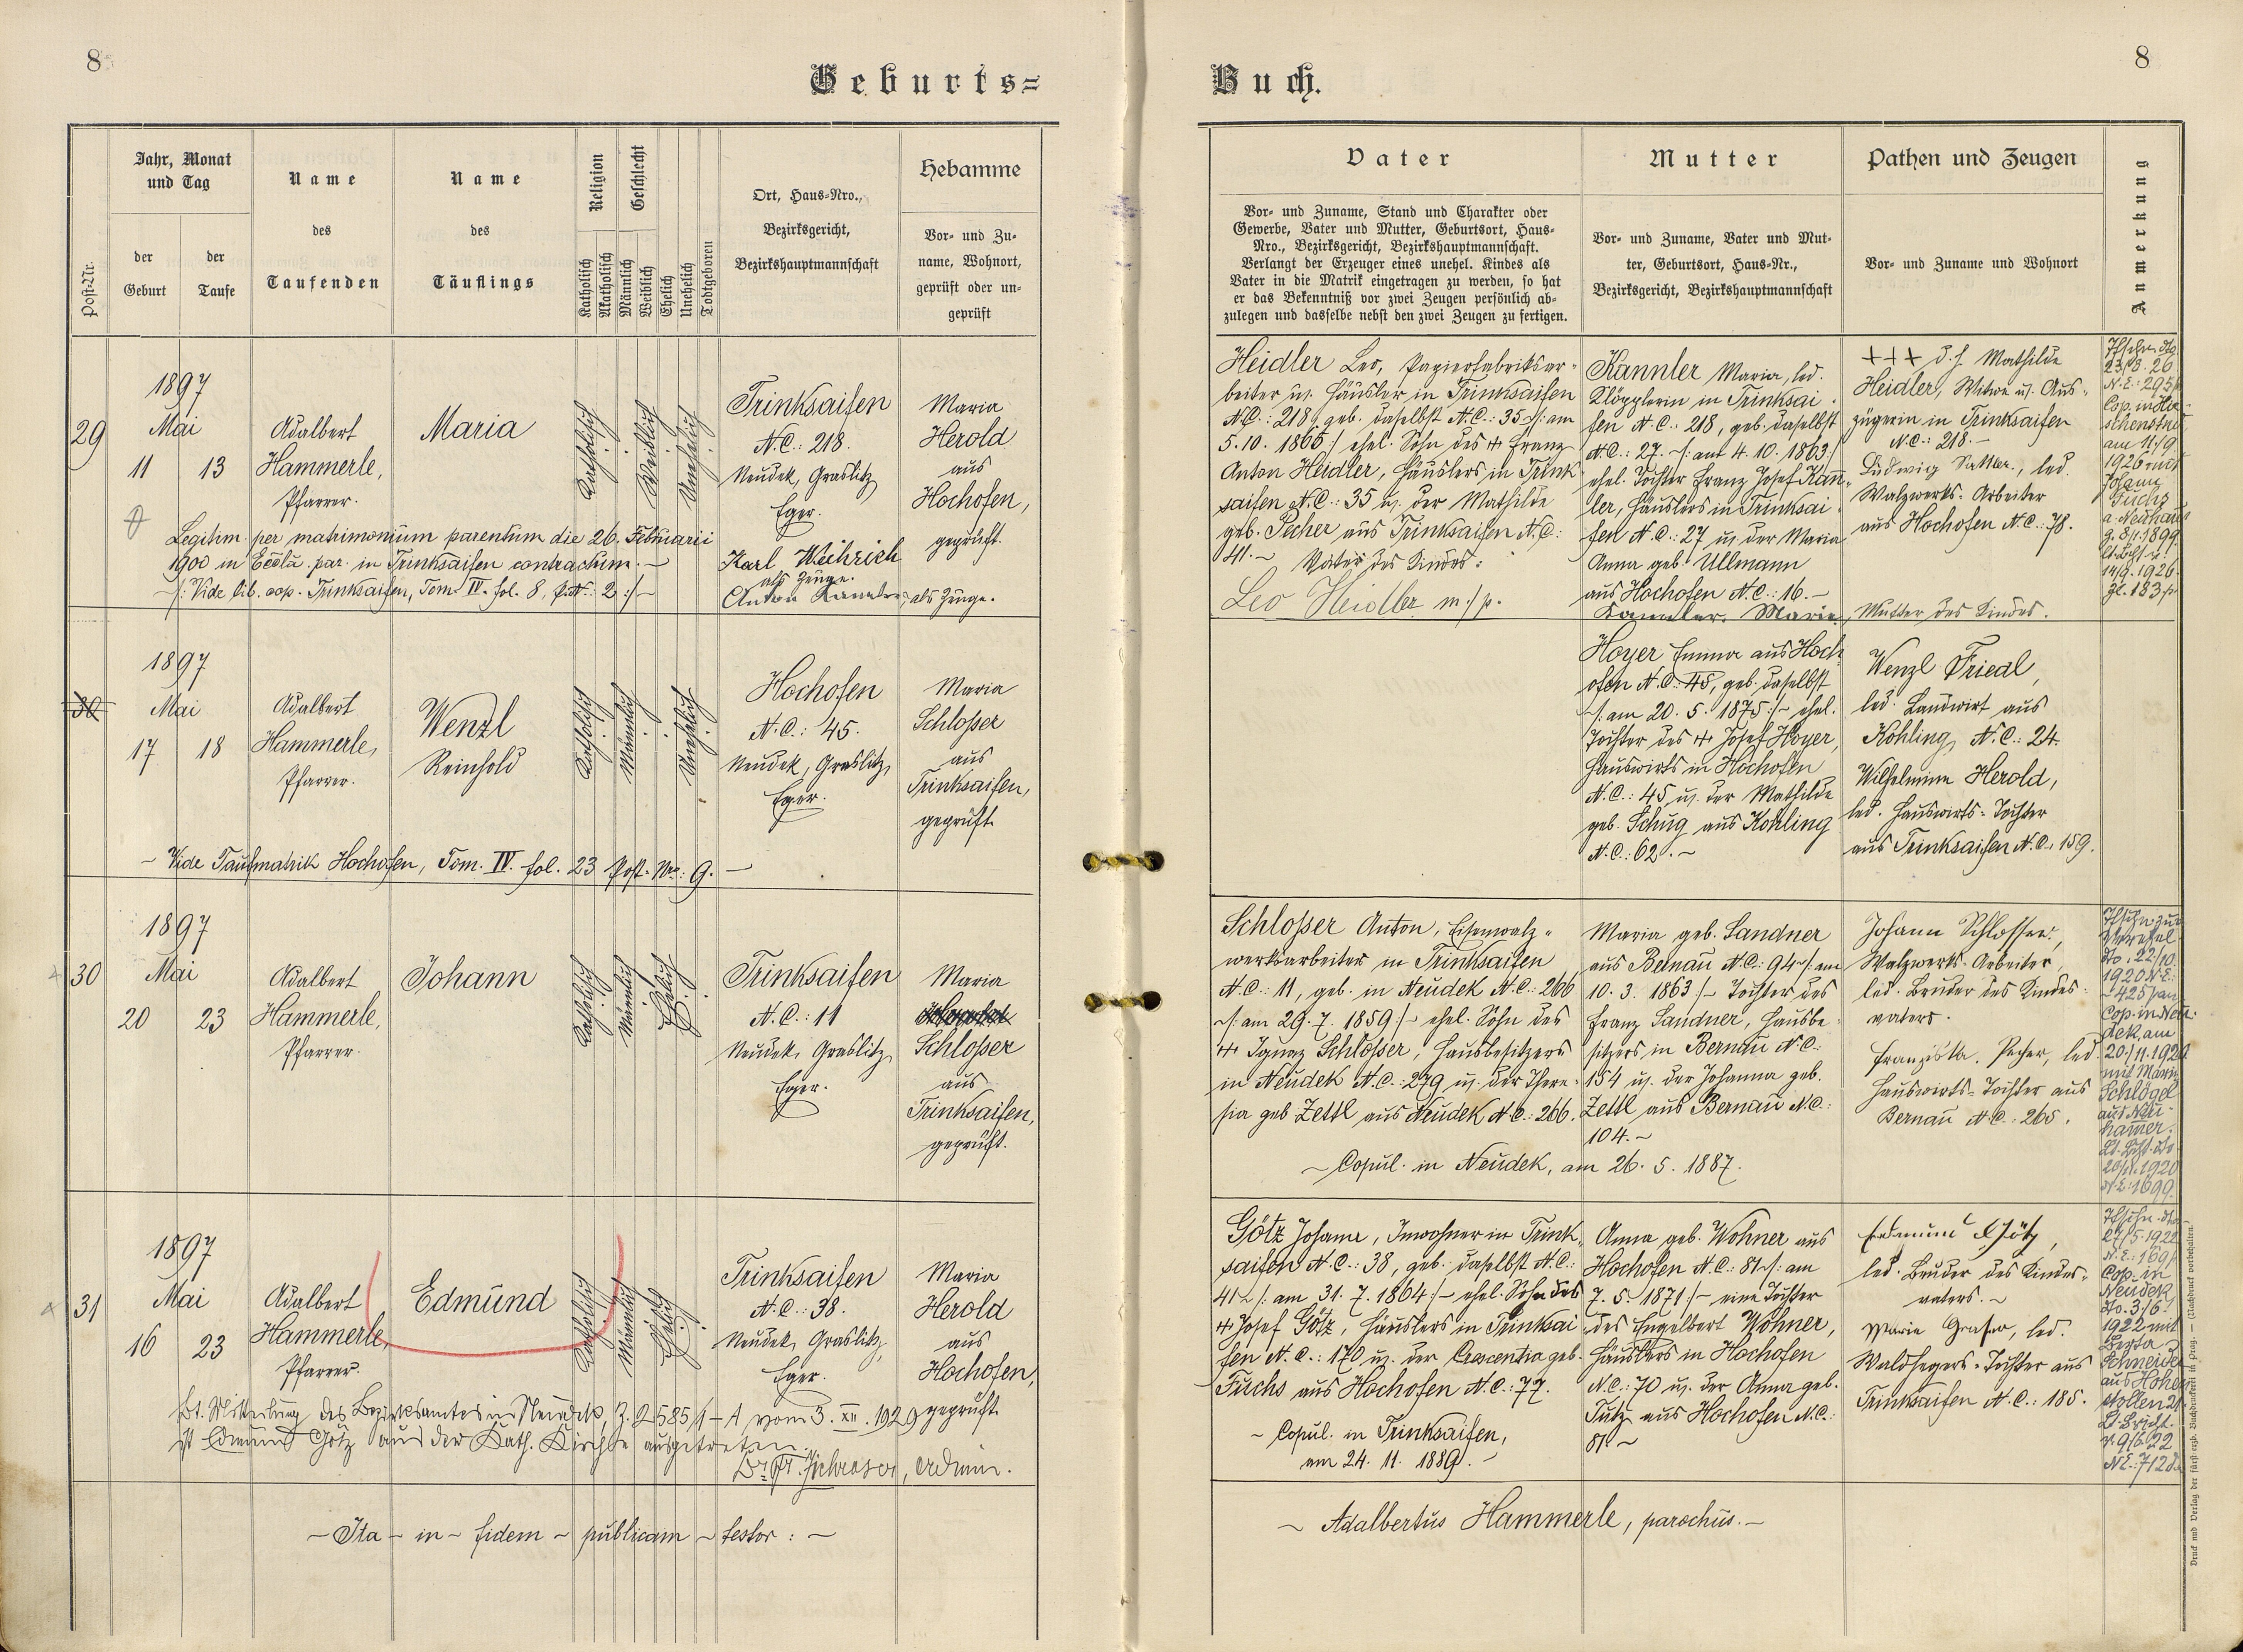 8
Geburts=
Jahr, Monat
und Tag
der
Geburt
der
Taufe
Post-Nr.
Name
des
Taufenden
Name
des
Täuflings
Religion
Katholisch
Akatholisch
Geschlecht
Männlich
Weiblich
Ehelich
Unehelich
Todtgeboren
Ort, Haus-Nro.,
Bezirksgericht,
Bezirkshauptmannschaft
Hebamme
Vor- und Zu-
name, Wohnort,
geprüft oder un-
geprüft
29
1897
Mai
11
13
Adalbert
Hammerle,
Pfarrer.
Maria
Katholisch
Weiblich
Unehelich
Trinksaifen
N.C.: 218.
Neudek, Graslitz
Eger.
Maria
Herold
aus
Hochofen,
geprüft.
Legitim. per matrimonium parentum die 26. Februarii
1900 in Eccla. par. in Trinksaifen contractum. –
/: Vide lib. cop. Trinksaifen, Tom. IV. fol. 8, 2 :/ –
Karl Weihrich
als Zeuge.
Anton Kannler, als Zeuge.
30
1897
Mai
17
18
Adalbert
Hammerle,
Pfarrer.
Wenzl
Reinhold
Katholisch
Männlich
Unehelich
Hochofen
N.C.: 45.
Neudek, Graslitz,
Eger.
Maria
Schlosser
aus
Trinksaifen,
geprüft
– Vide Taufmatrik Hochofen, Tom. IV. fol. 23 Post-Nro: 9. –
30
1897
Mai
20
23
Adalbert
Hammerle,
Pfarrer.
Johann
Katholisch
Männlich
Ehelich
Trinksaifen
N.C.: 11
Neudek, Graslitz,
Eger.
Maria
Schlosser
aus
Trinksaifen,
geprüft.
31
1897
Mai
16
23
Adalbert
Hammerle,
Pfarrer.
Edmund
Katholisch
Männlich
Ehelich
Trinksaifen
N.C.: 38.
Neudek, Graslitz,
Eger.
Maria
Herold
aus
Hochofen,
geprüft
Lt. Mitteilung des Bezirksamtes in Neudek, Z. 2585/1-A vom 3. XII. 1929
ist Edmund Götz aus der Kath. Kirche ausgetreten.
– Ita – in – fidem – publicam – testor : –
8
Buch.
Vater
Vor- und Zuname, Stand und Charakter oder
Gewerbe, Vater und Mutter, Geburtsort, Haus-
Nro., Bezirksgericht, Bezirkshauptmannschaft.
Verlangt der Erzeuger eines unehel. Kindes als
Vater in die Matrik eingetragen zu werden, so hat
er das Bekenntniß vor zwei Zeugen persönlich ab-
zulegen und dasselbe nebst den zwei Zeugen zu fertigen.
Mutter
Vor- und Zuname, Vater und Mut-
ter, Geburtsort, Haus-Nr.,
Bezirksgericht, Bezirkshauptmannschaft
Pathen und Zeugen
Vor- und Zuname und Wohnort
Anmerkung
Heidler Leo, Papierfabriksar-
beiter u. Häusler in Trinksaifen
N.C.: 218, geb. daselbst N.C.: 35 –/: am
5. 10. 1866 :/ ehel. Sohn des + Franz
Anton Heidler, Häuslers in Trink-
saifen N.C.: 35 u. der Mathilde
geb. Pecher aus Trinksaifen N.C:
41. – Vater des Kindes:
Leo Heidler m./p.
Kannler Maria, led.
Klöpplerin in Trinksai-
fen N.C.: 218, geb. daselbst
N.C.: 27. –/: am 4. 10. 1863 :/
ehel. Tochter Franz Josef Kann-
ler, Häuslers in Trinksai-
fen N.C.: 27 u. der Maria
Anna geb. Ullmann
aus Hochofen N.C.: 16. –
Kannler Marie, Mutter des Kindes.
+++ d. h. Mathilde
Heidler, Witwe u. Aus-
zügerin in Trinksaifen
N.C.: 218. –
Ludwig Sattler, led.
Walzwerks-Arbeiter
aus Hochofen N.C.: 78.
am 11./9.
1926 mit
Johann
Fuchs
a. Neuhaus
14/9. 1926
Hoyer Emma aus Hoch-
ofen N.C. 45, geb. daselbst
–/: am 20. 5. 1875 :/– ehel.
Tochter des + Josef Hoyer,
Hauswirts in Hochofen
N.C.: 45 u. der Mathilde
geb. Schug aus Kohling
N.C.: 62. –
Wenzl Friedl,
led. Landwirt aus
Kohling, N.C.: 24.
Wilhelmine Herold,
led. Hauswirts-Tochter
aus Trinksaifen N.C. 159.
Schlosser Anton, Eisenwalz-
werksarbeiter in Trinksaifen
N.C.: 11, geb. in Neudek N.C.: 266
–/: am 29. 7. 1859 :/– ehel. Sohn des
+ Ignaz Schlosser, Hausbesitzers
in Neudek N.C.: 279 u. der There-
sia geb Zettl aus Neudek N.C.: 266.
Maria geb. Sandner
aus Bernau N.C.: 94 –/: am
10. 3. 1863 :/– Tochter des
Franz Sandner, Hausbe-
sitzers in Bernau N.C.
154 u. der Johanna geb.
Zettl aus Bernau N.C.:
104. –
– Copul. in Neudek, am 26. 5. 1887.
Johann Schlosser,
Walzwerks-Arbeiter
led. Bruder des Kindes-
vaters.
Franziska Pecher, led.
Hauswirts-Tochter aus
Bernau N.C.: 265.
22/10.
1920 N.E:
Cop. in Neu-
dek am
20./11. 1920
mit Marie
Schlögel
aus Neu-
hamer.
N.E: 1699
Götz Johann, Inwohner in Trink-
saifen N.C.: 38, geb. daselbst N.C.:
41 –/: am 31. 7. 1864 :/– ehel. Sohn des
+ Josef Götz, Häuslers in Trinksai-
fen N.C.: 170 u. der Crescentia geb.
Fuchs aus Hochofen N.C.: 77.
– Copul. in Trinksaifen,
am 24. 11. 1889. –
Anna geb. Wohner aus
Hochofen N.C.: 81 –/: am
7. 5. 1871 :/– eine Tochter
des Engelbert Wohner,
Häuslers in Hochofen
N.C.: 70 u. der Anna geb.
Lutz aus Hochofen N.C.:
81. –
Edmund Götz,
led. Bruder des Kindes-
vaters. –
Marie Grafer, led.
Waldhegers-Tochter aus
Trinksaifen N.C.: 185.
27/5. 1922
Cop. in
Neudek
dto. 3/6.
1922 mit
Berta
Schneider
aus Hohen-
stollen
9/6. 22
– Adalbertus Hammerle, parochus. –
Druck und Verlag der fürst-erzb. Buchdruckerei in Prag. – (Nachdruck vorbehalten.)